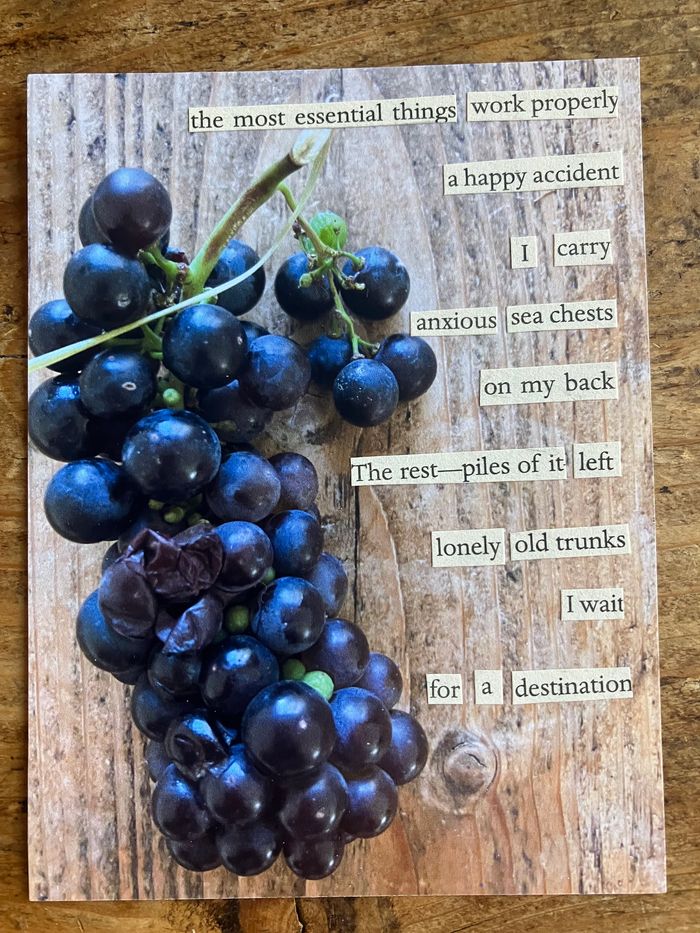 the most essential things work properly
a happy accident
I carry
anxious sea chests
on my back
The rest—piles of it left
lonely old trunks
I wait
for a destination